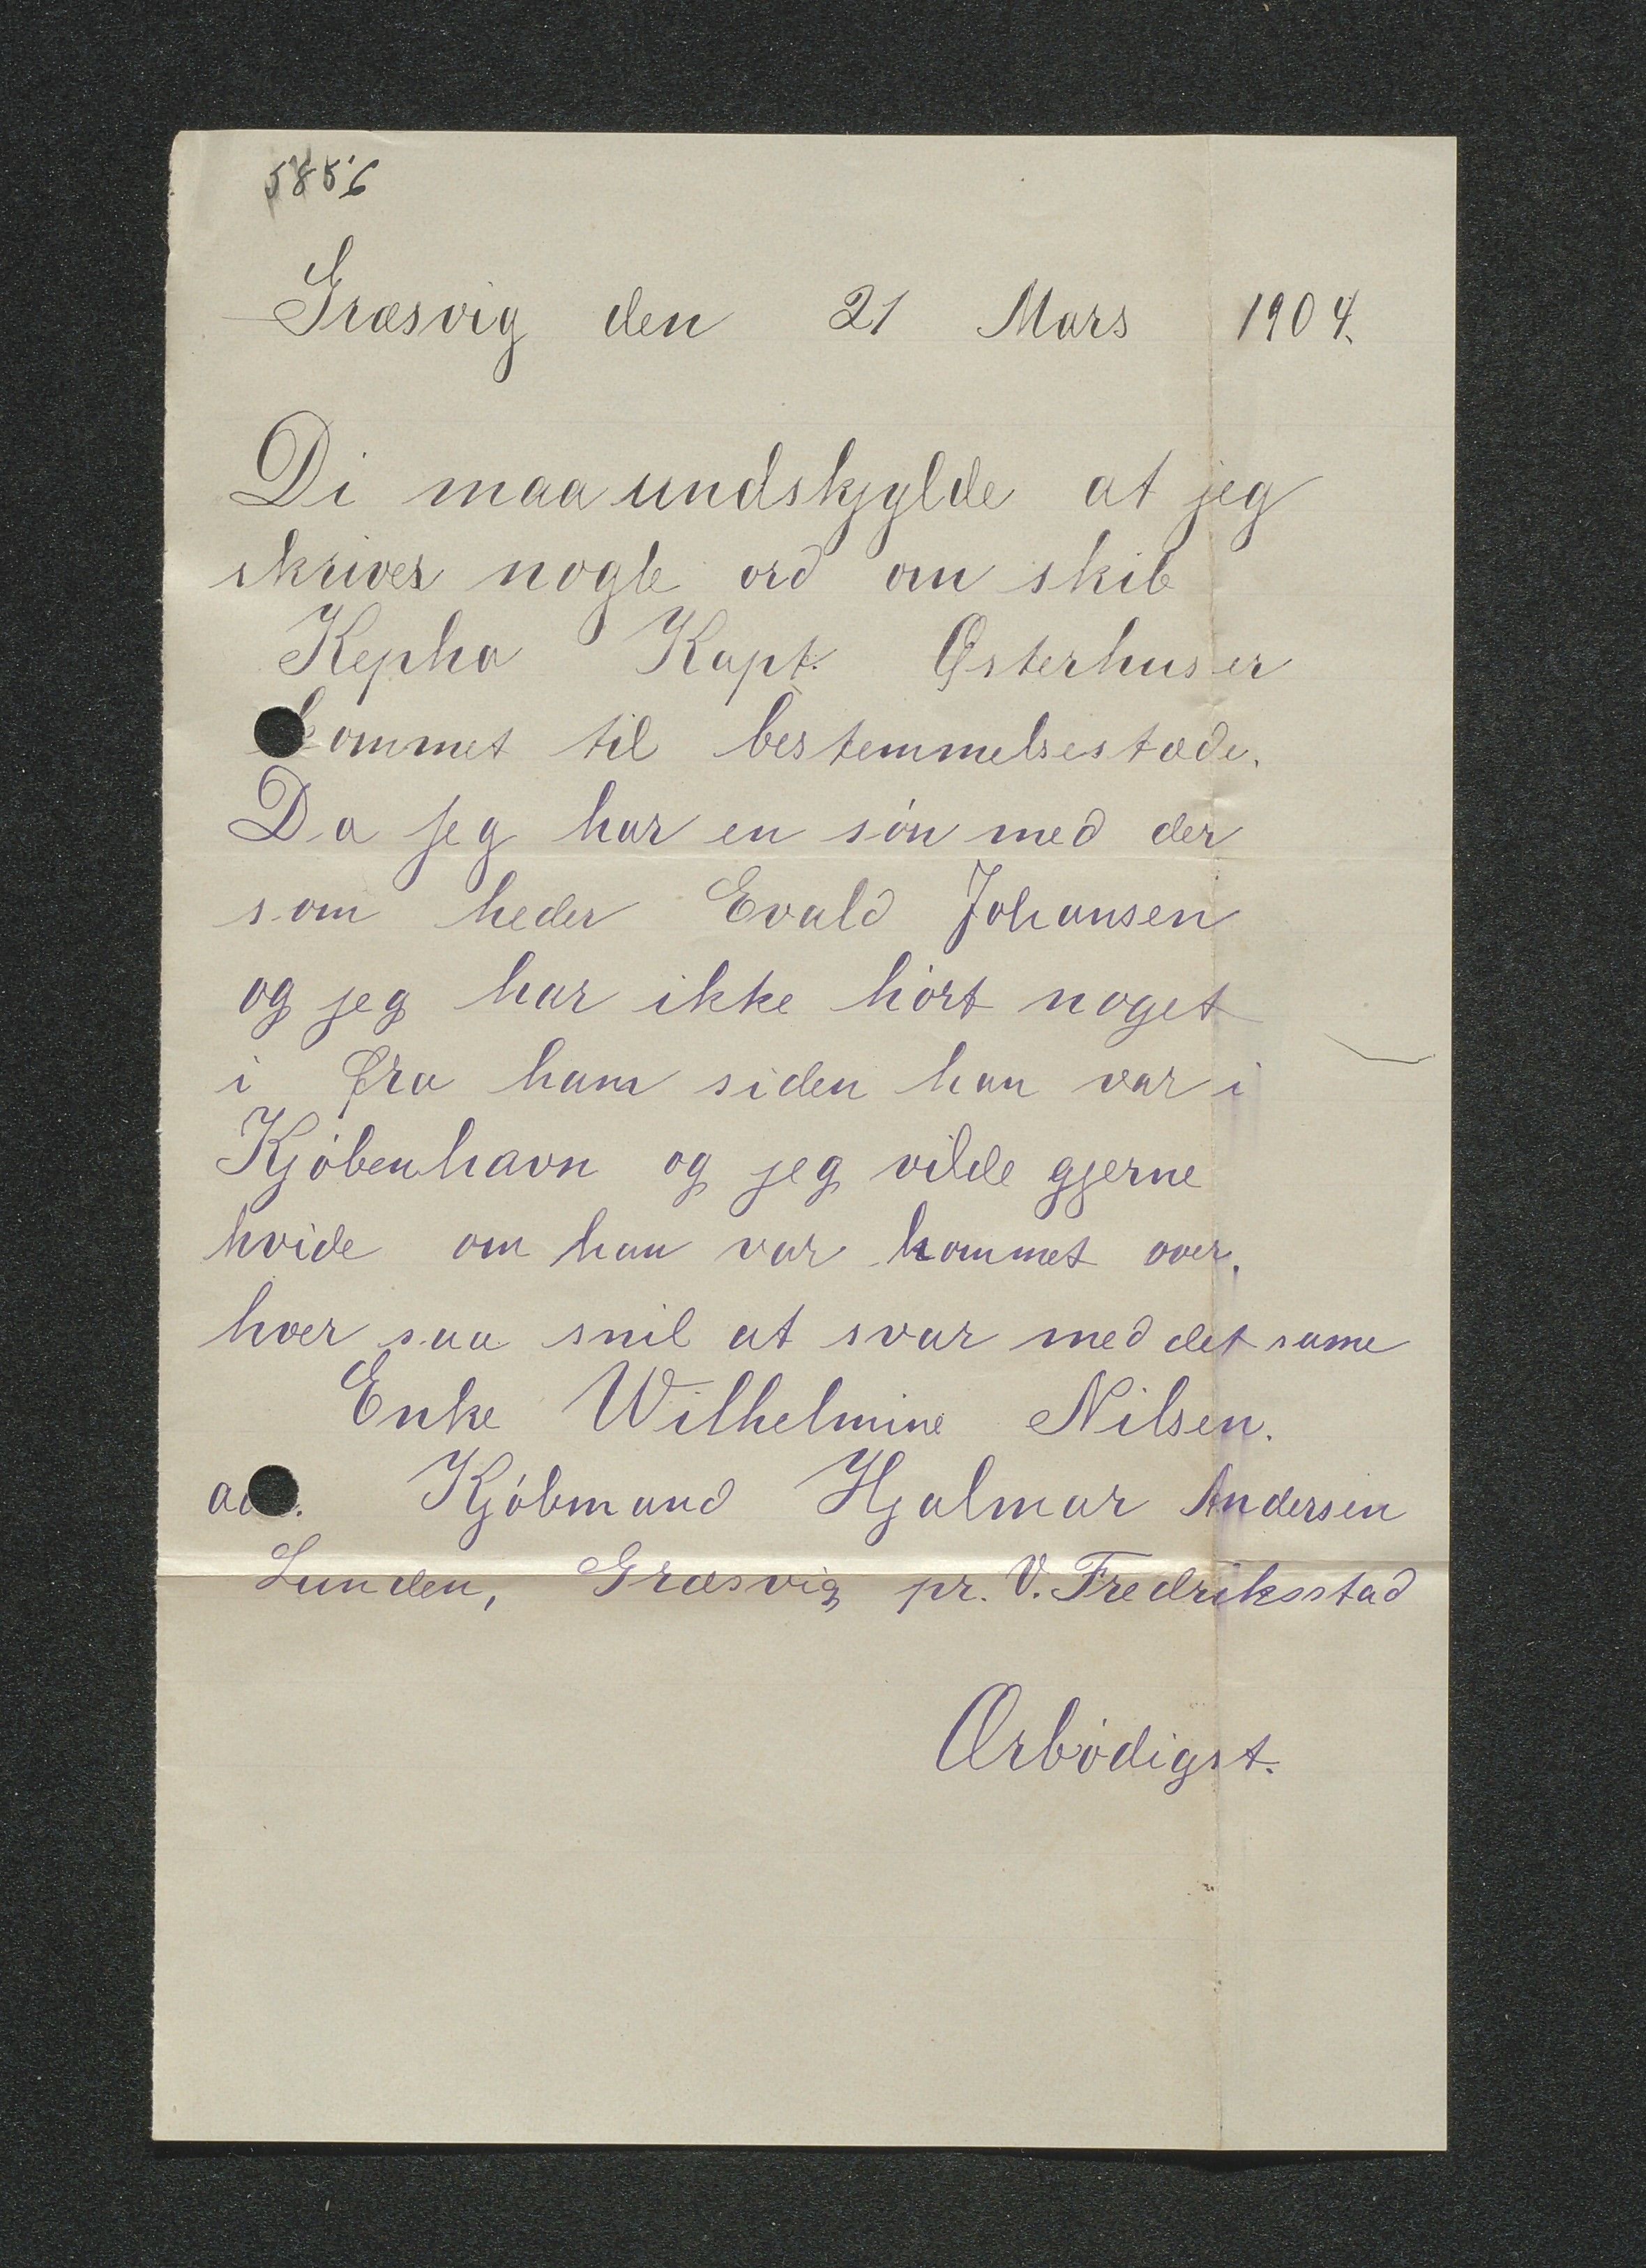 5856
Græsvig den 21 Mars 1904.
Di maa undskjylde at jeg
skriver nogle ord om skib
Kepha Kapt. Østerhus er
kommet til bestemmelsestæde.
Da jeg har en søn med der
som heder Evald Johansen
og jeg har ikke hørt noget
i fra ham siden han var i
Kjøbenhavn og jeg vilde gjerne
hvide om han var kommet over.
hver saa snil at svar med det same
Enke Wilhelmine Nilsen.
ad. Kjøbmand Hjalmar Andersen
Lunden, Græsvig pr. V. Fredriksstad
Ærbødigst.